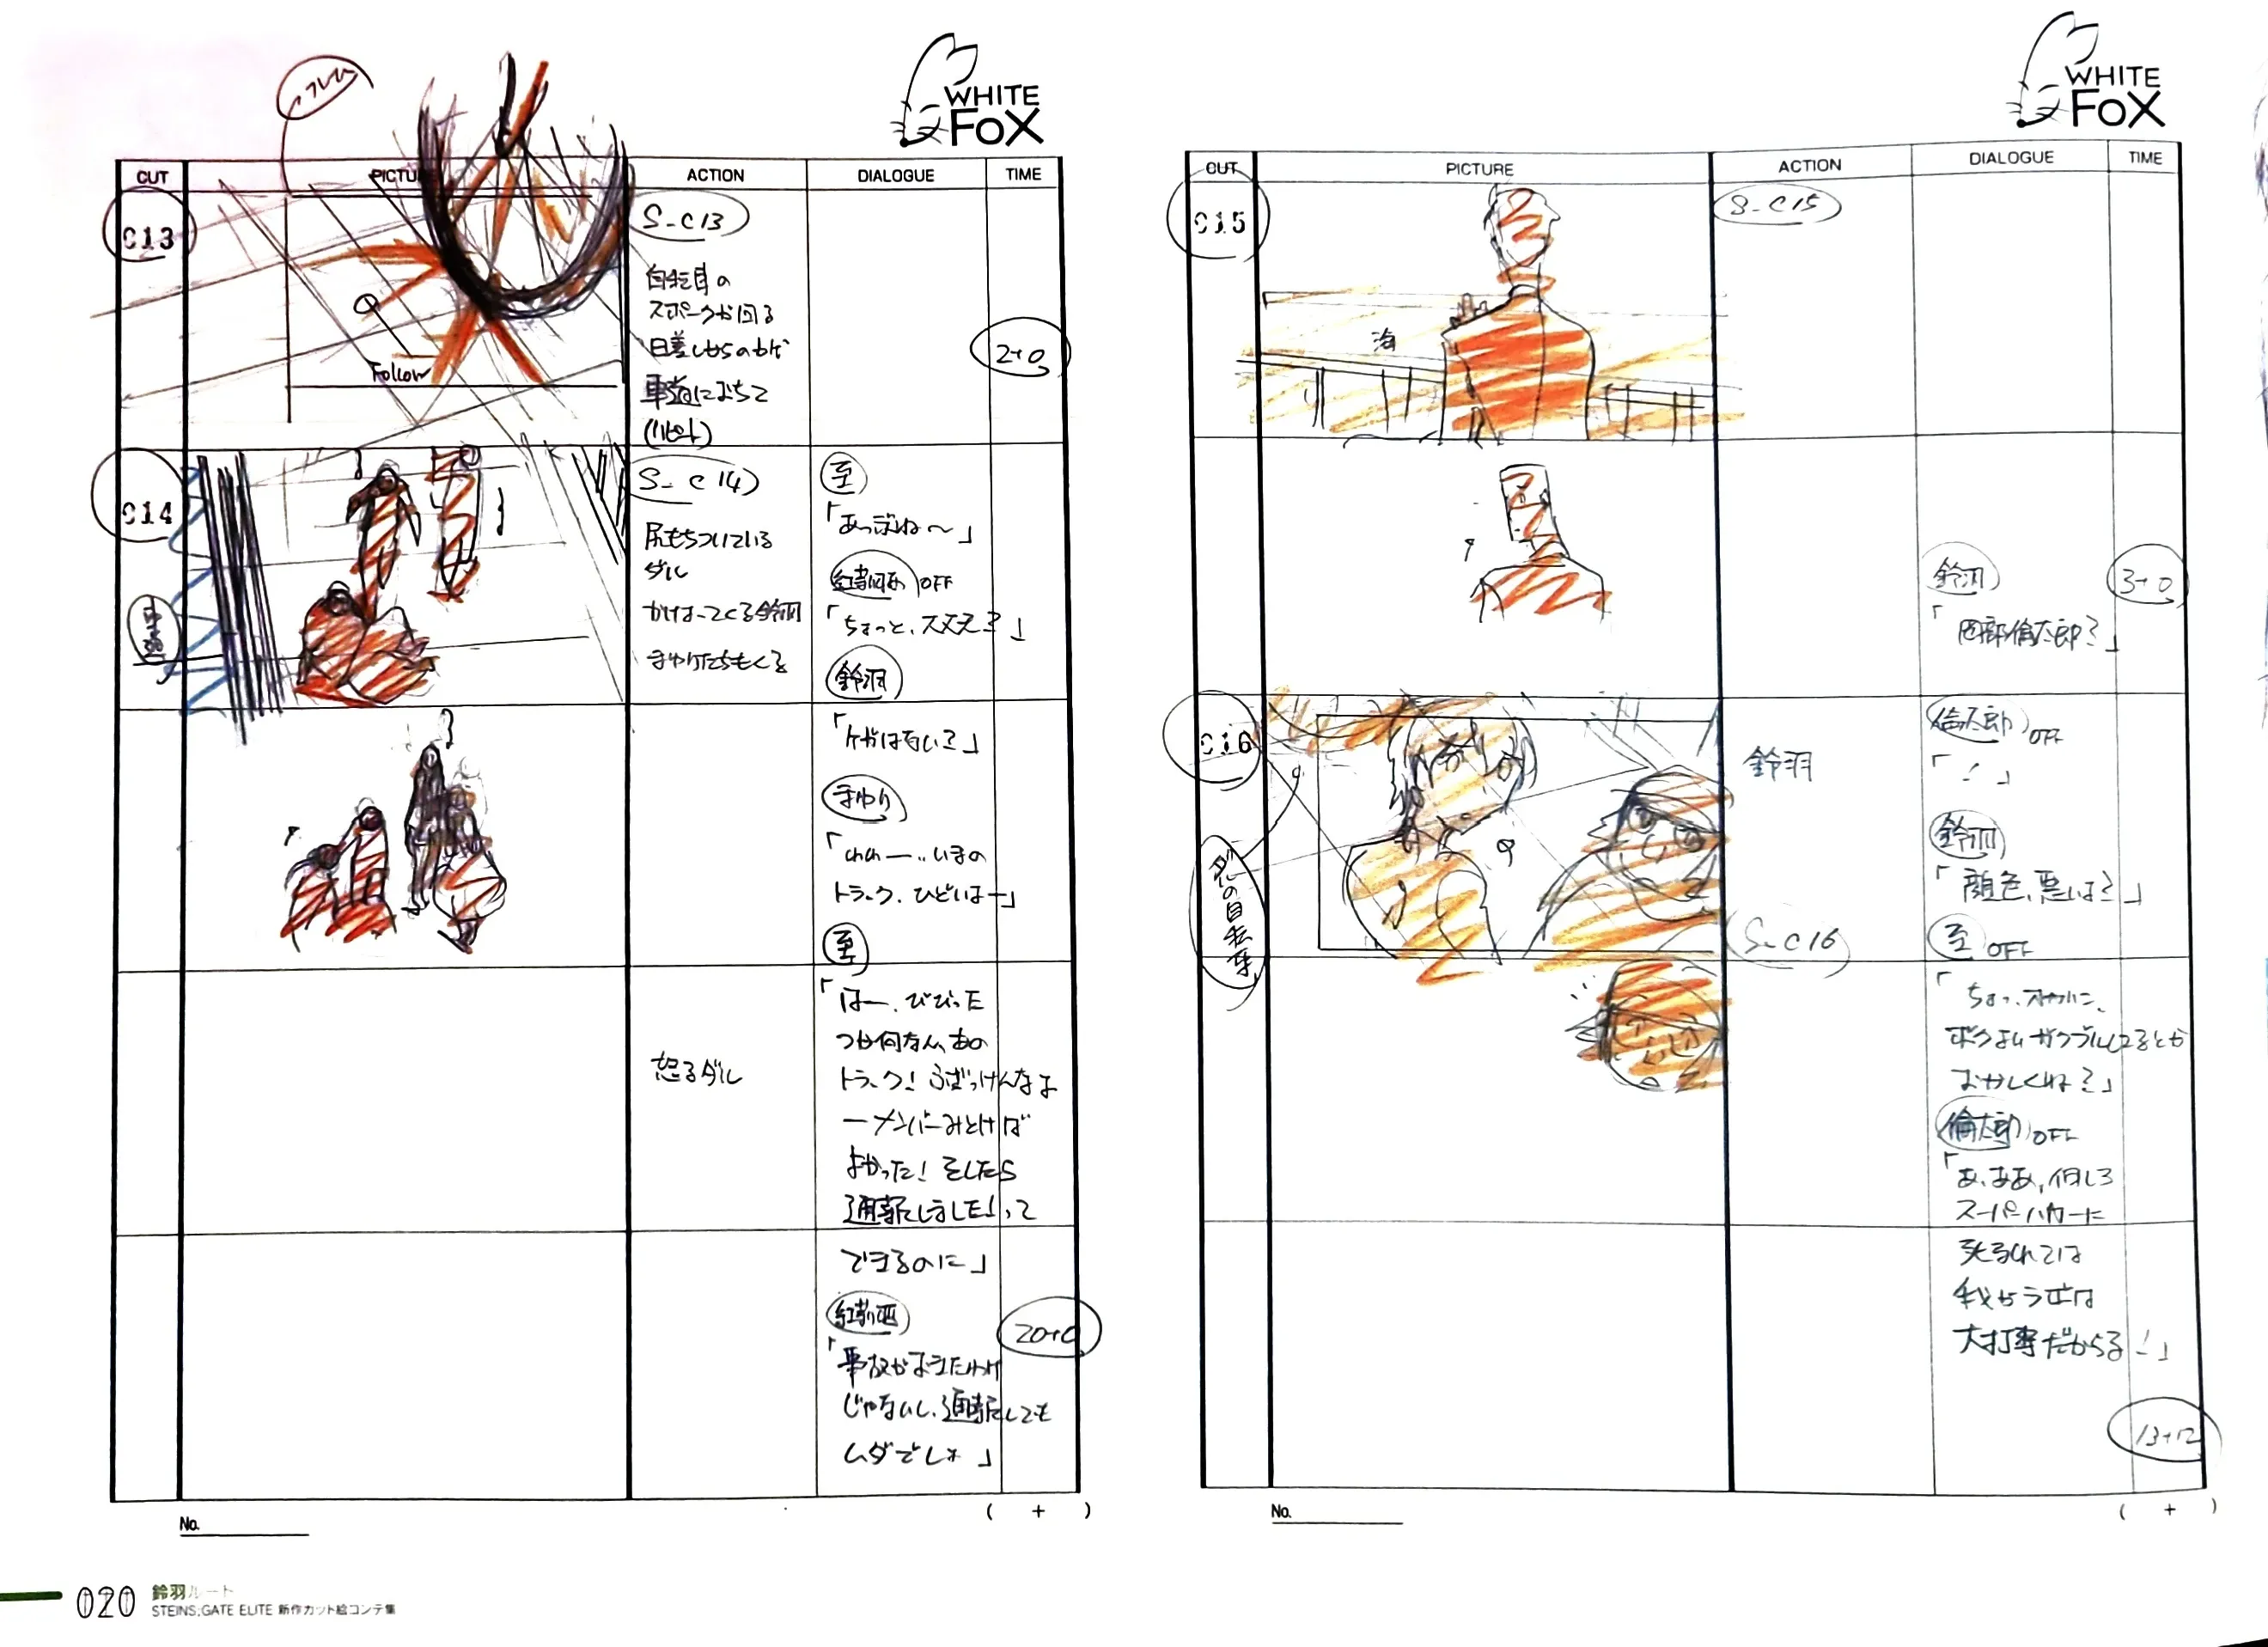 WHITE
FOX
CUT
PICTURE
ACTION
DIALOGUE
TIME
013
S-C13
自転車の
スポークが回る
日差しからのカゲ
車道におちて
(リピート)
Follow
2+0
014
S-C14
尻もちついている
ダル
かけよってくる鈴羽
まゆりたちもくる
車道
至
「あっぶね〜」
紅莉栖 OFF
「ちょっと、大丈夫?」
鈴羽
「ケガはない?」
まゆり
トラック、ひどいよー」
至
「はー、びびった
つか何なん、あの
トラック!ふざっけんなよ
ーナンバーみとけば
よかった!そしたら
通報しました!って
できるのに」
怒るダル
紅莉栖
「事故がおきたわけ
じゃないし、通報しても
ムダでしょ」
20+0
No.
( + )
WHITE
FOX
CUT
PICTURE
ACTION
DIALOGUE
TIME
015
S-C15
海
鈴羽
「岡部倫太郎?」
3+0
016
鈴羽
S-C16
の自転車
倫太郎 OFF
「!」
鈴羽
「顔色、悪いよ?」
至 OFF
ボクよりガクブルしてるとか
おかしくね?」
倫太郎 OFF
「あ、ああ、何しろ
スーパーハカーに
死なれては
我がラボは
大打撃だからな!」
13+12
No.
( + )
020
鈴羽ルート
STEINS;GATE ELITE 新作カット絵コンテ集